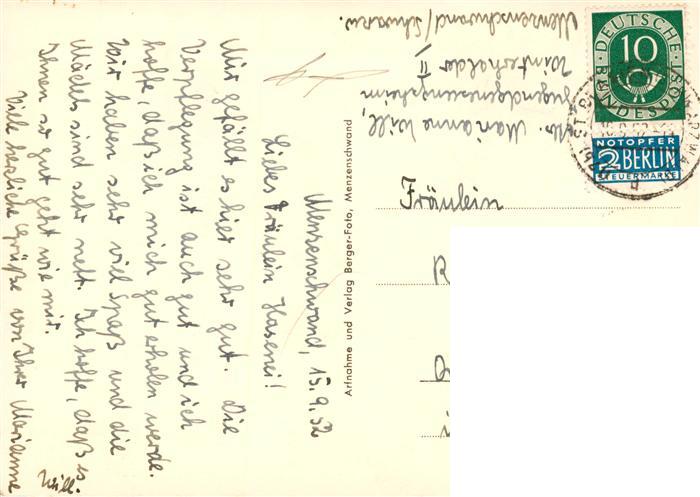 Menzenschwand, 15.9.52
Liebes Fräulein Hasenei!
Mir gefällt es hier sehr gut. Die
Verpflegung ist auch gut und ich
hoffe, daß ich mich gut erholen werde.
Wir haben sehr viel Spaß und die
Mädels sind sehr nett. Ich hoffe, daß es
Ihnen so gut geht wie mir.
Viele herzliche Grüße von Ihrer Marianne
Will.
Aufnahme und Verlag Berger-Foto, Menzenschwand
Abs. Marianne Will,
Jugendgenesungsheim
Winterhalder II
Menzenschwand/Schwarzw.
DEUTSCHE
BUNDESPOST
10
NOTOPFER
2 BERLIN
STEUERMARKE
Fräulein